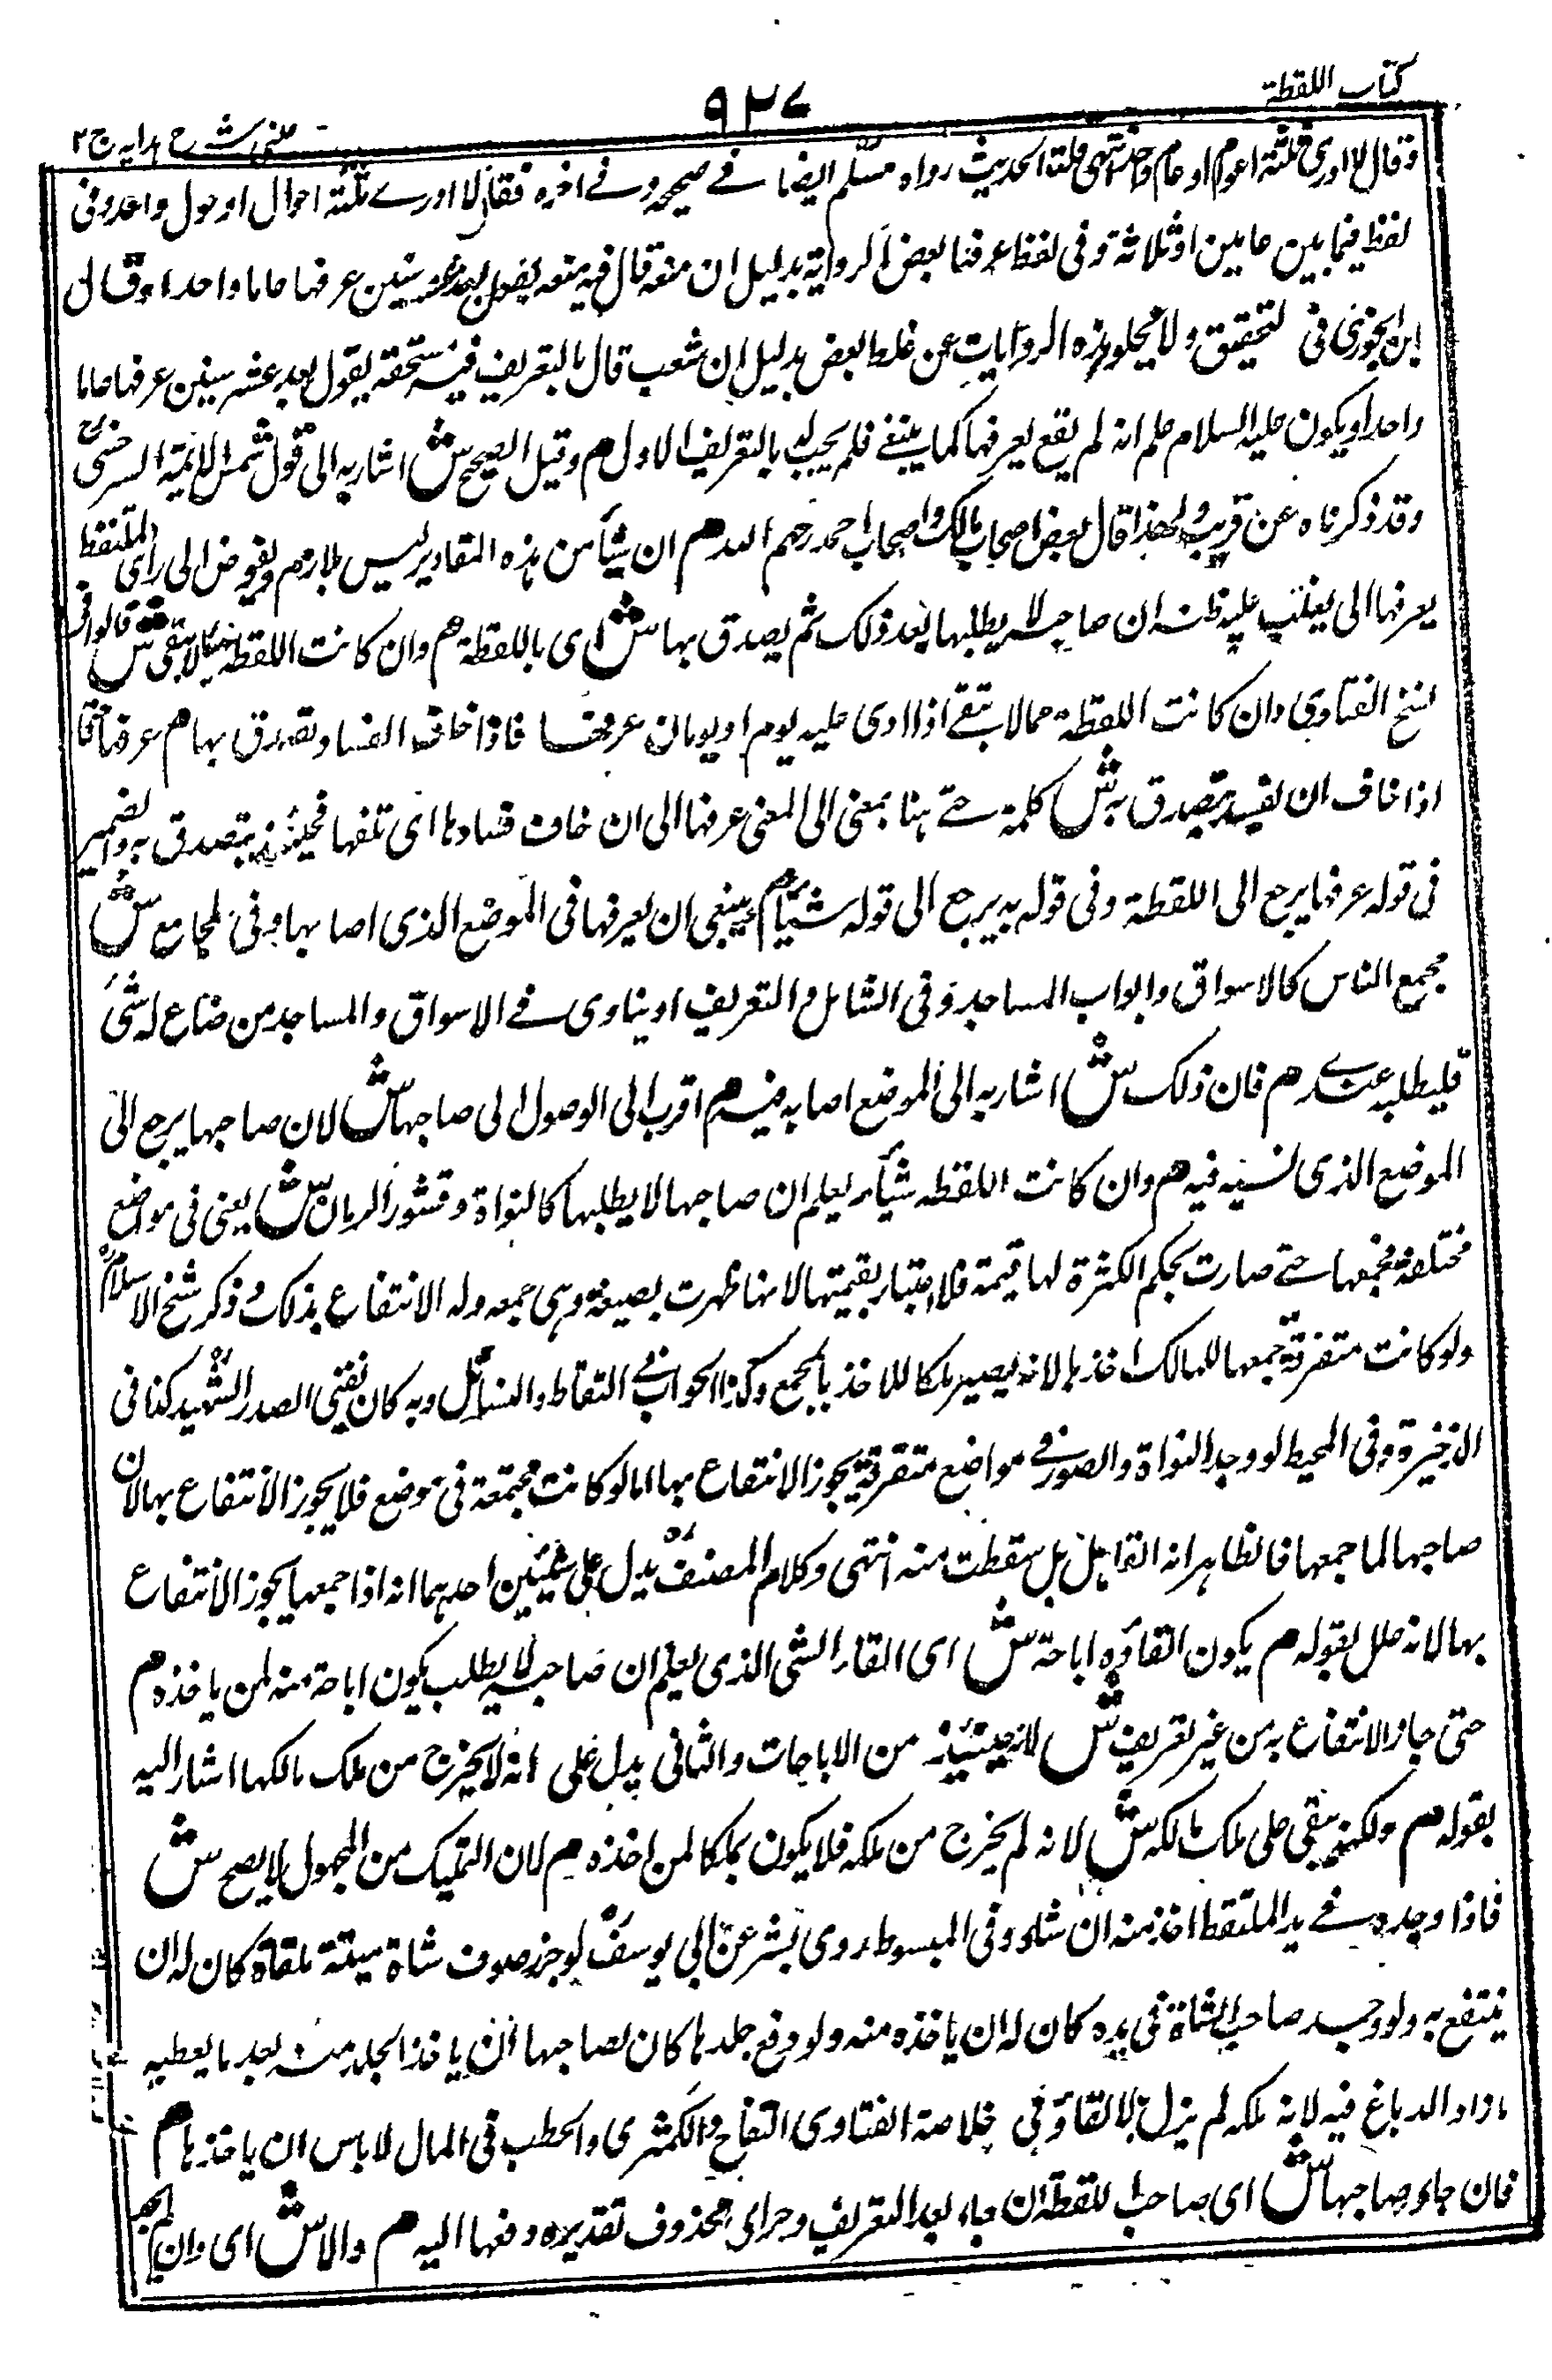 كتاب اللقطة
٩٢٤
عينى شرح هدايه ج ٢
وقال لا ادرى ثلثة اعوام او عام واحد انتهى قلت الحديث رواه مسلم ايضا فے صحيحه وفے اخره فقال لا ادرے ثلثة احوال او حول واحد وفى
لفظ فيما بين عامين او ثلاثة وفى لفظ عرفنا بعض الرواية بدليل ان منعه قال فيه منعه يقول بعد عشر سنين عرفها عاما واحدا وقال
ابن الجوزى فى التحقيق ولا يخلو هذه الروايات عن غلط البعض بدليل ان شعب قال بالتعريف فيستحقه يقول بعد عشر سنين عرفها عاما
واحدا ويكون عليه السلام علم انه لم يقع يعرفها كما ينبغے فلم يجب له بالتعريف الاول م وقيل الصحيح ش اشار به الى قول شمس الائمة السرخسى
وقد ذكرناه عن قريب ولهذا قال بعض اصحاب مالك واصحاب احمد رحهم الله م ان شيأ من هذه المقادير ليس بلازم ويفوض الى راى الملتقط
يعرفها الى يغلب عليه ظنه ان صاحبها لا يطلبها بعد ذلك ثم يصدق بها ش اى باللقطة م وان كانت اللقطة مما لا يبقى ش قالوا فى
نسخ الفتاوى وان كانت اللقطة مما لا يبقے اذا ادى عليه يوم او يومان عرفها فاذا خاف الفساد تصدق بها م عرفها حتى
اذا خاف ان يفسد يتصدق به ش كلمة حتے هنا بمعنى الى المعنى عرفها الى ان خاف فسادها اى تلفها فحينئذ يتصدق به والضمير
فى قوله عرفها يرجع الى اللقطة وفى قوله به يرجع الى قوله شيأ م وينبغى ان يعرفها فى الموضع الذى اصابها وفى المجامع ش
مجمع الناس كالاسواق وابواب المساجد وفى الشامل والتعريف او يناوى فے الاسواق والمساجد من ضاع له شئ
فليطلبه عندے م فان ذلك ش اشار به الى الموضع اصابه فيه م اقرب الى الوصول الى صاحبها ش لان صاحبها يرجع الى
الموضع الذى نسيه فيه م وان كانت اللقطة شيأ يعلم ان صاحبها لا يطلبها كالنواة وقشور الرمان ش يعنى فى مواضع
مختلفة فجمعها حتے صارت بحكم الكثرة لها قيمة فلا اعتبار بقيمتها لانها ظهرت بصيغة وهى جمعه وله الانتفاع بذلك وذكر شيخ الاسلام
ولو كانت متفرقة جمعها للمالك اخذها لانه يصير ملكا للاخذ بالجمع وكذا الجواب فے التقاط والسنابل وبه كان يفتى الصدر الشهيد كذا فى
الذخيرة وفى المحيط لو وجد النواة والصور فے مواضع متفرقة يجوز الانتفاع بها اما لو كانت مجتمعة فى موضع فلا يجوز الانتفاع بها لان
صاحبها لما جمعها فالظاهر انه القاها بل سقطت منه انتهى وكلام المصنف يدل على شيئين احدهما انه اذا جمعها يجوز الانتفاع
بها لانه علل بقوله م يكون القاؤه اباحة ش اى القاء الشى الذى يعلم ان صاحبه لا يطلب يكون اباحة منه لمن ياخذه م
حتى جاز الانتفاع به من غير تعريف ش لانه حينئذ من الاباحات والثانى يدل على انه لا يخرج من ملك مالكها اشار اليه
بقوله م ولكنه يبقى على ملك مالكه ش لانه لم يخرج من ملكه فلا يكون ملكا لمن اخذه م لان التمليك من المجهول لا يصح ش
فاذا وجده فے يد الملتقط اخذ منه ان شاء وفى المبسوط روى بشر عن ابى يوسف لو جز صوف شاة ميتة ملقاة كان له ان
ينتفع به ولو وجد صاحب الشاة فى يده كان له ان ياخذه منه ولو دفع جلدها كان لصاحبها ان ياخذ الجلد منه بعد ما يعطيه
ما زاد الدباغ فيه لانه ملكه لم يزل بالالقاء وفى خلاصة الفتاوى التفاح والكمثرى والحطب فى المال لا باس ان ياخذها م
فان جاء صاحبها ش اى صاحب اللقطة ان جاء بعد التعريف وجزائى محذوف تقديره دفعها اليه م والا ش اى وان لم يجئ